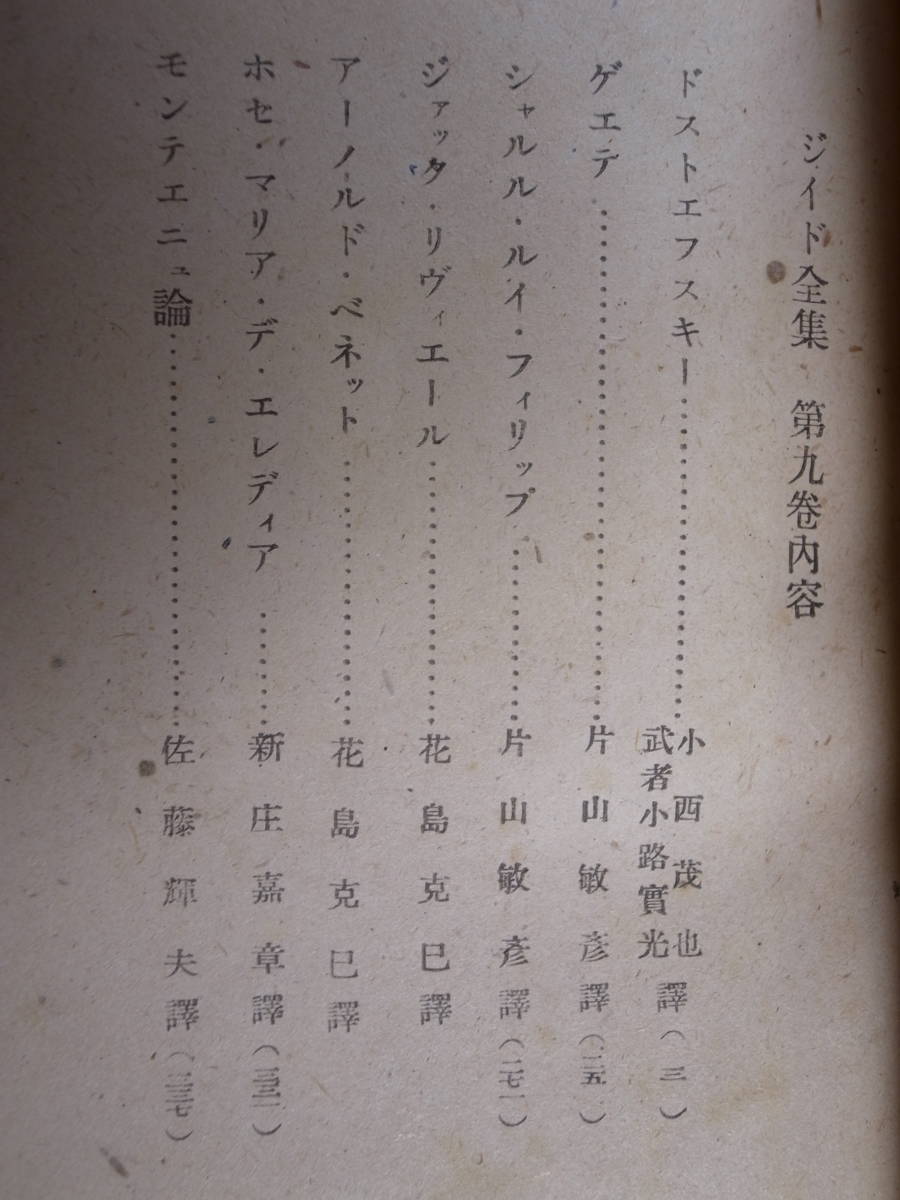 ジイド全集　第九卷內容
ドストエフスキー……………………小西茂也 武者小路實光 譯（三）
ゲエテ……………………片山敏彥譯
シャルル・ルイ・フィリップ……………片山敏彥譯（二七一）
ジァック・リヴィエール……………………花島克巳譯
アーノルド・ベネット……………………花島克巳譯
ホセ・マリア・デ・エレディア…………新庄嘉章譯
モンテエニュ論……………………佐藤輝夫譯（三三七）